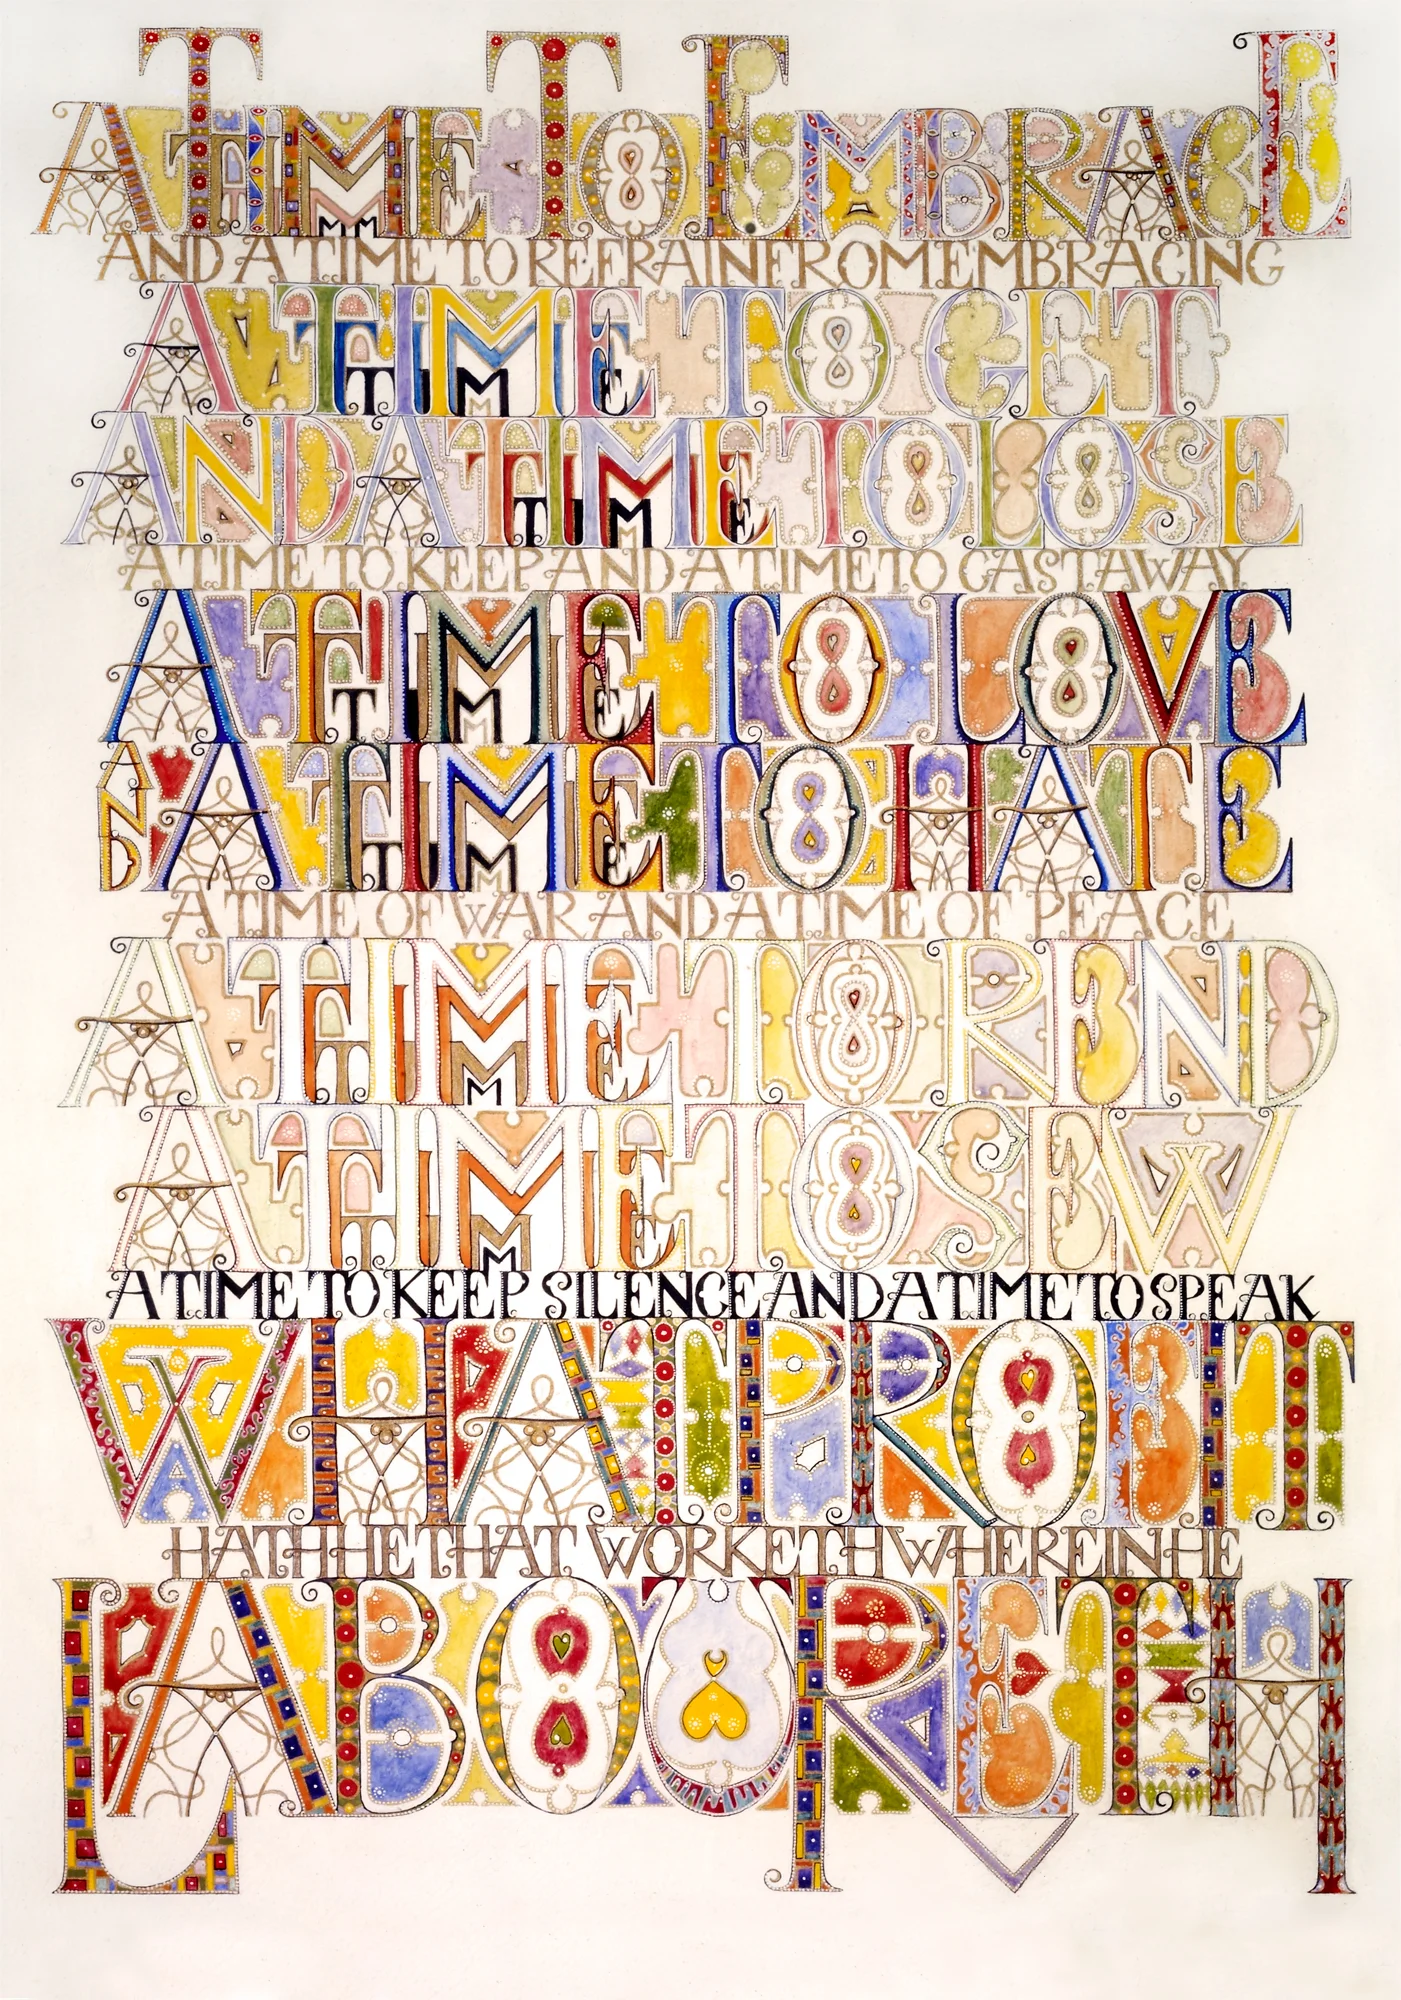 A TIME TO EMBRACE
AND A TIME TO REFRAIN FROM EMBRACING
A TIME TO GET
AND A TIME TO LOSE
A TIME TO KEEP AND A TIME TO CAST AWAY
A TIME TO LOVE
AND A TIME TO HATE
A TIME OF WAR AND A TIME OF PEACE
A TIME TO REND
A TIME TO SEW
A TIME TO KEEP SILENCE AND A TIME TO SPEAK
WHAT PROFIT
HATH HE THAT WORKETH WHEREIN HE
LABOURETH